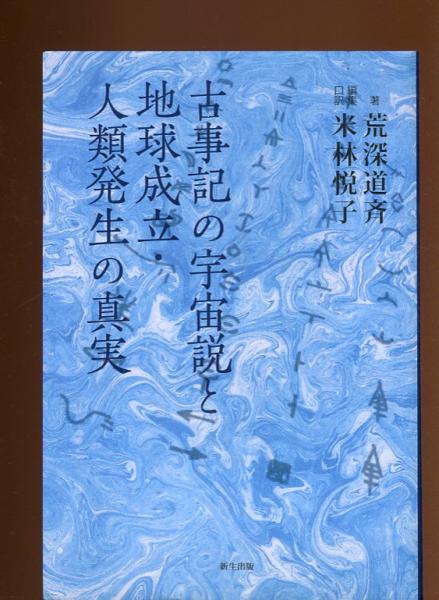 著 荒深道斉
編集 口訳 米林悦子
古事記の宇宙説と
地球成立・
人類発生の真実
新生出版